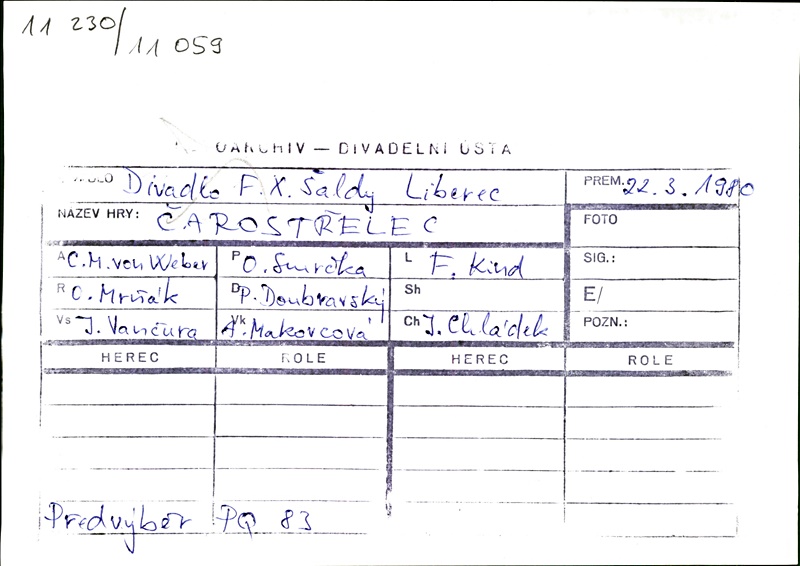 11 230/11 059
OARCHIV — DIVADELNÍ ÚSTA
DLO Divadlo F. X. Šaldy Liberec PREM. 22. 3. 1980
NÁZEV HRY: ČAROSTŘELEC FOTO
A C. M. von Weber P O. Smrčka L F. Kind SIG.:
R O. Mrňák D P. Doubravský Sh E/
Vs J. Vančura Vk A. Makovcová Ch J. Chládek POZN.:
HEREC ROLE HEREC ROLE
Předvýběr PQ 83